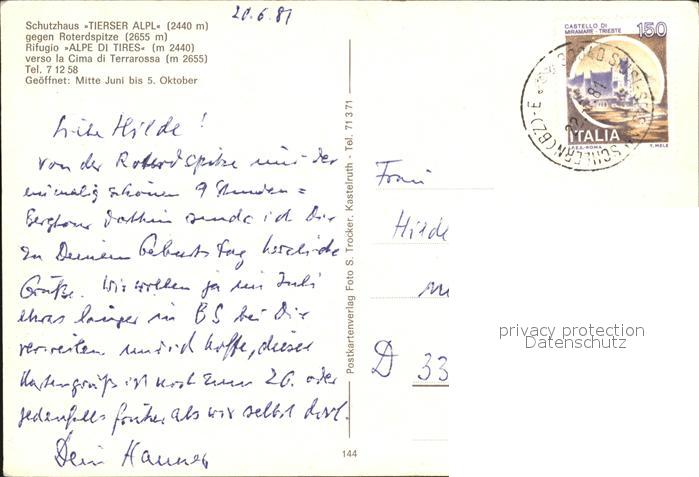 Schutzhaus »TIERSER ALPL« (2440 m)
gegen Roterdspitze (2655 m)
Rifugio »ALPE DI TIRES« (m 2440)
verso la Cima di Terrarossa (m 2655)
Tel. 7 12 58
Geöffnet: Mitte Juni bis 5. Oktober
20.6.81
Liebe Hilde!
Von der Roterdspitze und der
einmalig schönen 9 Stunden =
Bergtour dorthin sende ich Dir
zu Deinem Geburtstag herzliche
Grüße. Wir wollen ja im Juli
etwas länger in BS bei Dir
verweilen und ich hoffe, dieser
Kartengruß ist noch zum 26. oder
jedenfalls früher als wir selbst dort.
Dein Hannes
Postkartenverlag Foto S. Trocker, Kastelruth - Tel. 71371
144
CASTELLO DI
MIRAMARE - TRIESTE
150
ITALIA
Frau
Hilde
D 33
privacy protection
Datenschutz